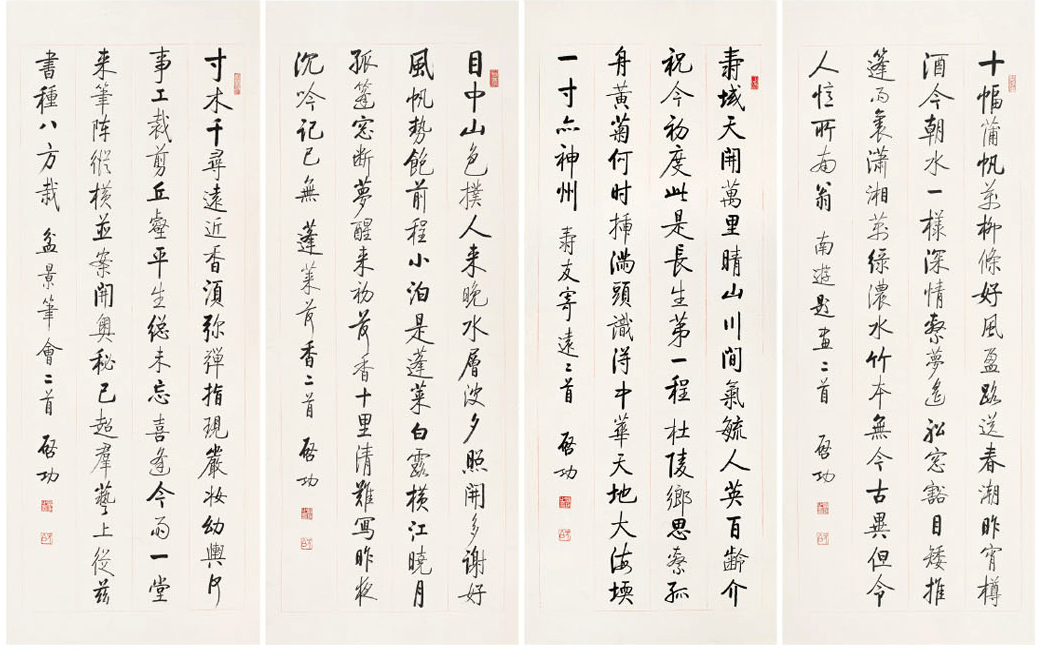 十幅蒲帆萬柳條好風盈路送春潮昨宵樽
酒今朝水一樣深情縈夢遙 船窗豁目矮推
篷雨裏瀟湘萬緑濃水竹本無今古異但令
人憶所南翁 南遊題畫二首 啓功
壽域天開萬里晴山川間氣毓人英百齡介
祝今初度此是長生第一程 杜陵鄉思縈孤
舟黃菊何时插滿頭識得中華天地大海堧
一寸亦神州 壽友寄遠二首 啓功
目中山色撲人来晚水層波夕照開多謝好
風帆勢飽前程小泊是蓬萊 白露橫江曉月
孤篷窗断夢醒来初荷香十里清難寫昨夜
沉吟記已無 蓬萊荷香二首 啓功
寸木千尋遠近香須弥彈指現嚴妝幼輿何
事工裁剪丘壑平生總未忘 喜逢今雨一堂
来筆阵縱橫並案開奧秘已超羣藝上從兹
書種八方栽 盆景筆會二首 啓功